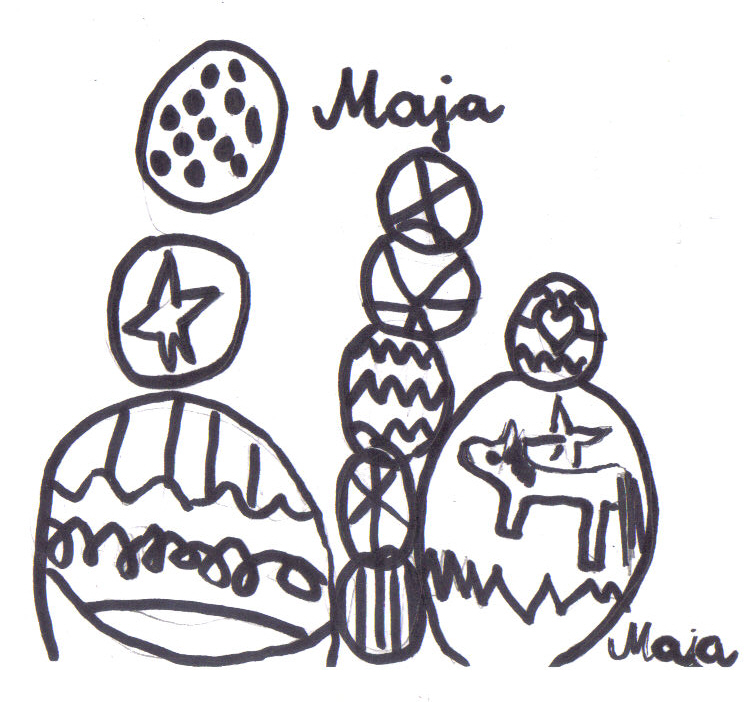 Maja
Maja